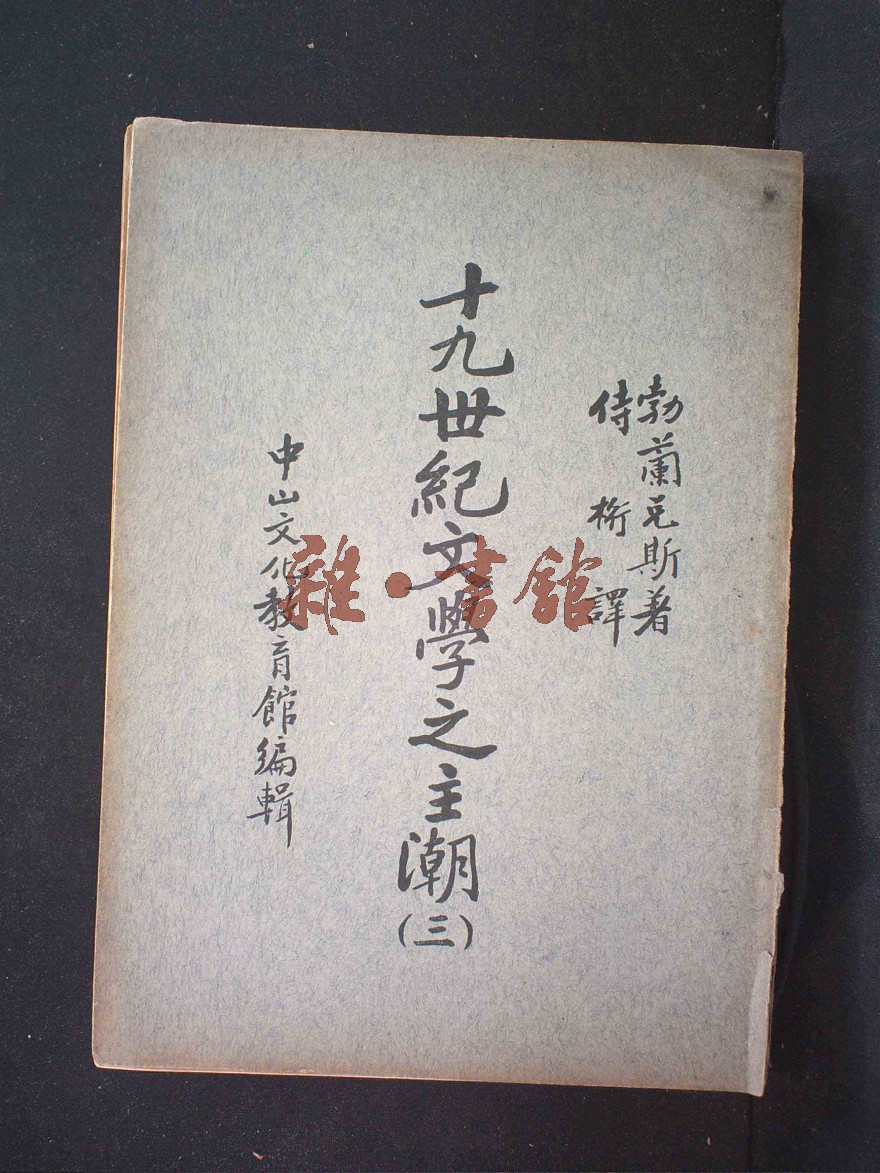 勃蘭克斯著
侍桁譯
十九世紀文學之主潮(三)
中山文化教育館編輯
雜·書館